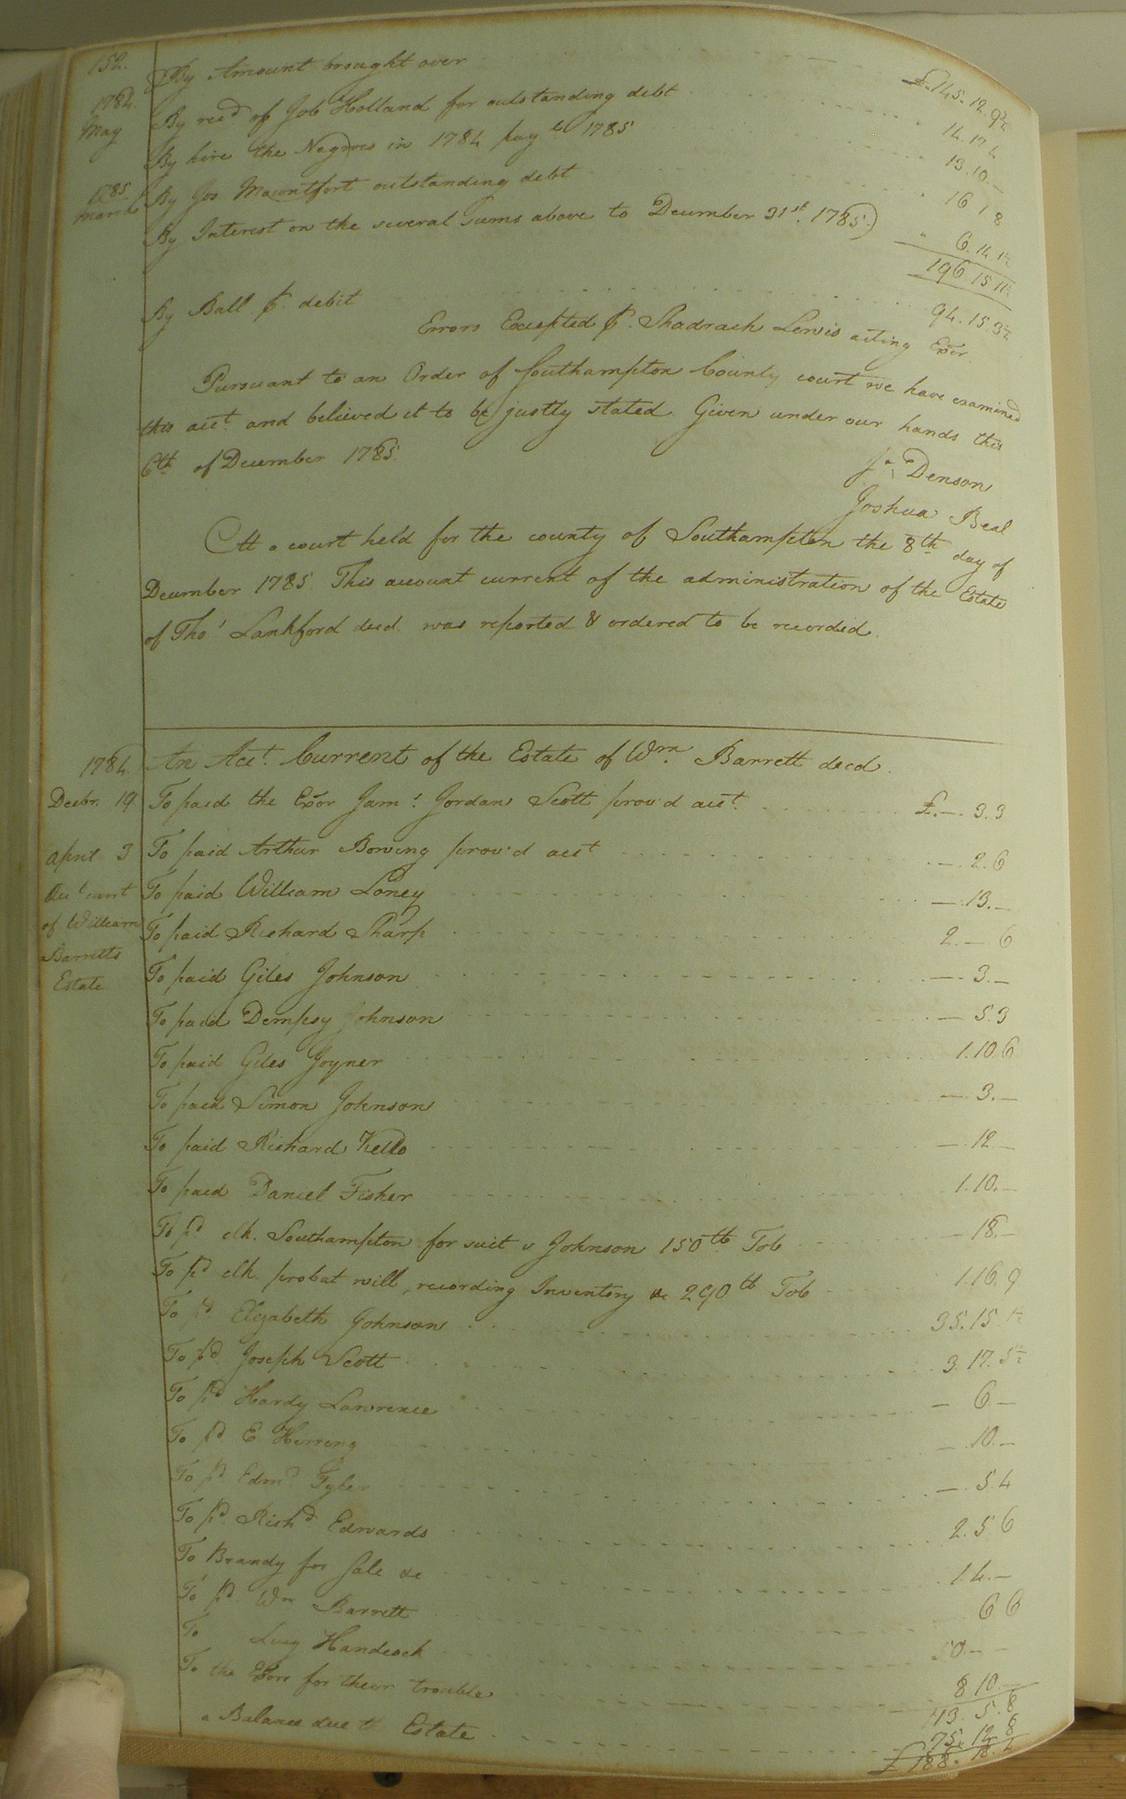 152.
By Amount brought over £.145.12.9½
1784. May By recd of Job Holland for outstanding debt 14.17.4
By hire the Negroes in 1784 payle 1785 13.10.—
1785 March By Jos. Mountfort outstanding debt 16 1 8
By Interest on the several sums above to December 31st. 1785) " 6.14.1½
196.15.11½
By Ball pr. debit 94.15.3½
Errors Excepted pr. Shadrach Lewis acting Exor.
Pursuant to an Order of Southampton County court we have examined
this acct. and believed it to be justly stated. Given under our hands this
6th. of December 1785.
Jo. Denson
Joshua Beal
At a court held for the county of Southampton the 8th day of
December 1785 This account current of the administration of the Estate
of Thos. Lankford decd. was reported & ordered to be recorded.
1784. An Acct. Current of the Estate of Wm. Barrett decd.
Decbr. 19 To paid the Exor Jams. Jordan Scott prov'd acct. £.—.3.3
April 3 To paid Arthur Bowing prov'd acct —.2.6
Acct curnt To paid William Loney —.13.—
of William To paid Richard Sharp 2.—6
Barretts
Estate To paid Giles Johnson —.3.—
To paid Dempsy Johnson —5.3
To paid Giles Joyner 1.10.6
To paid Simon Johnson —.3.—
To paid Richard Kello —.12—
To paid Daniel Fisher 1.10.—
To pd clk. Southampton for suit v Johnson 150 lb Tob —18.—
To pd clk probat will, recording Inventory &c 290 lb Tob 1.16.9
To pd Elizabeth Johnson 35.15.
To pd. Joseph Scott 3.17.5½
To pd Hardy Lawrence — 6.—
To pd E Herring —.10.—
To pd Edmd —.5.4
To pd. Richd Edwards 2.5 6
To Brandy for sale &c 1 4.—
To pd. Wm Barrett 6 6
To Lucy Handcock 50.——
To the Exors for their trouble 8 10.—
113.5.8
a Balance due the Estate 75.12 8
£188.18.4